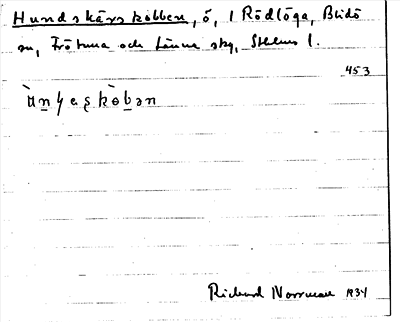 Hundskärskobben, ö, i Rödlöga, Blidö
sn, Frötuna och Länna skg, Sthlms l.
453
Richard Norrman 1934